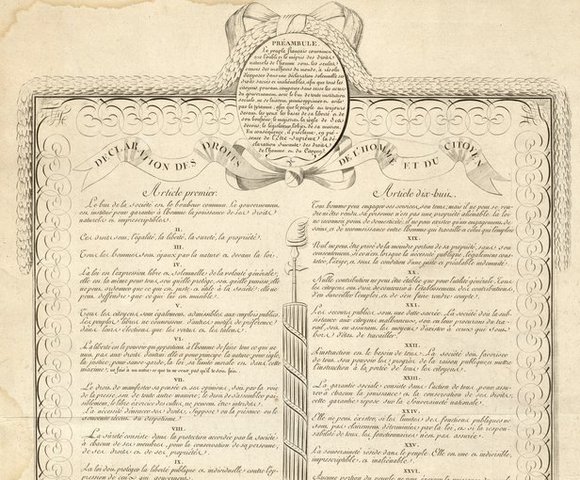 PRÉAMBULE.
Le peuple français convaincu
que l'oubli et le mépris des droits
naturels de l'homme sont les seules
causes des malheurs du monde, a résolu
d'exposer dans une déclaration solemnelle ces
droits sacrés et inaliénables, afin que tous les
citoyens pouvant comparer sans cesse les actes
du gouvernement avec le but de toute institution
sociale, ne se laissent jamais opprimer et avilir
par la tyrannie, afin que le peuple ait toujours
devant les yeux les bases de sa liberté et de
son bonheur; le magistrat la règle de ses
devoirs; le législateur l'objet de sa mission.
En conséquence, il proclame, en pré-
sence de l'Être-Suprême la dé-
claration suivante des droits
de l'homme et du Citoyen
DÉCLARATION DES DROITS DE L'HOMME ET DU CITOYEN
Article premier.
Le but de la société est le bonheur commun. Le gouvernement
est institué pour garantir à l'homme la jouissance de ses droits
naturels et imprescriptibles.
II.
Ces droits sont, l'égalité, la liberté, la sûreté, la propriété.
III.
Tous les hommes sont égaux par la nature et devant la loi.
IV.
La loi est l'expression libre et solemnelle de la volonté générale;
elle est la même pour tous, soit qu'elle protège, soit qu'elle punisse; elle
ne peut ordonner que ce qui est juste et utile à la société; elle ne
peut défendre que ce qui lui est nuisible.
V.
Tous les citoyens sont également admissibles aux emplois publics.
Les peuples libres ne connoissent d'autres motifs de préférence
dans leurs élections que les vertus et les talens.
VI.
La liberté est le pouvoir qui appartient à l'homme de faire tout ce qui ne
nuit pas aux droits d'autrui: elle a pour principe la nature, pour règle
la justice, pour sauve-garde la loi, sa limite morale est dans cette
maxime: ne fais à un autre ce que tu ne veux pas qu'il te soit fait.
VII.
Le droit de manifester sa pensée et ses opinions, soit par la voie
de la presse, soit de toute autre manière, le droit de s'assembler pai-
siblement, le libre exercice des cultes, ne peuvent être interdits.
La nécessité d'énoncer ces droits suppose ou la présence ou le
souvenir récent du despotisme.
VIII.
La sûreté consiste dans la protection accordée par la Société
à chacun de ses membres pour la conservation de sa personne,
de ses droits et de ses propriétés.
IX.
La loi doit protéger la liberté publique et individuelle contre l'op-
pression de ceux qui gouvernent.
Article dix-huit.
Tout homme peut engager ses services, son tems; mais il ne peut se ven-
dre ni être vendu, sa personne n'est pas une propriété aliénable. la loi
ne reconnoit point de domesticité; il ne peut exister qu'un engagement de
soins et de reconnoissance entre l'homme qui travaille et celui qui l'emploie
XIX.
Nul ne peut être privé de la moindre portion de sa propriété, sans son
consentement, si ce n'est lorsque la nécessité publique, légalement cons-
tatée, l'exige, et sous la condition d'une juste et préalable indemnité.
XX.
Nulle contribution ne peut être établie que pour l'utilité générale. Tous
les citoyens ont droit de concourir à l'établissement des contributions,
d'en surveiller l'emploi, et de s'en faire rendre compte.
XXI.
Les secours publics sont une dette sacrée. La société doit la sub-
sistance aux citoyens malheureux, soit en leur procurant du tra-
vail, soit en assurant les moyens d'exister à ceux qui sont
hors d'état de travailler.
XXII.
L'instruction est le besoin de tous. La société doit favoriser
de tout son pouvoir les progrès de la raison publique et mettre
l'instruction à la portée de tous les citoyens.
XXIII.
La garantie sociale consiste dans l'action de tous, pour assu-
rer à chacun la jouissance et la conservation de ses droits;
cette garantie repose sur la Souveraineté nationale.
XXIV.
Elle ne peut exister, si les limites des fonctions publiques ne
sont pas clairement déterminées par la loi, et si la respon-
sabilité de tous les fonctionnaires n'est pas assurée.
XXV.
La souveraineté réside dans le peuple. Elle est une et indivisible,
imprescriptible et inaliénable.
XXVI.
Aucune portion du peuple ne peut exercer la puissance du